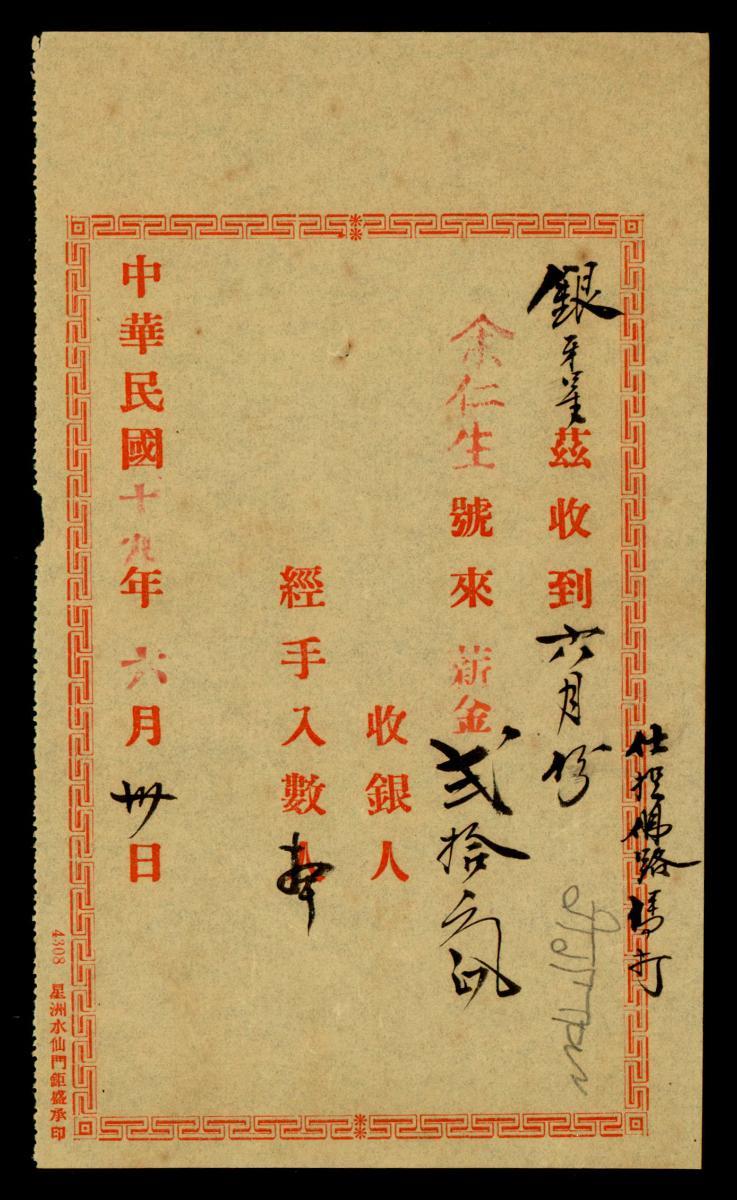 仕担佛路馬打
銀茲收到六月份
余仁生號來薪金弍拾元
收銀人
經手入數人
中華民國十九年六月卅日
4308 星洲水仙門鉅盛承印